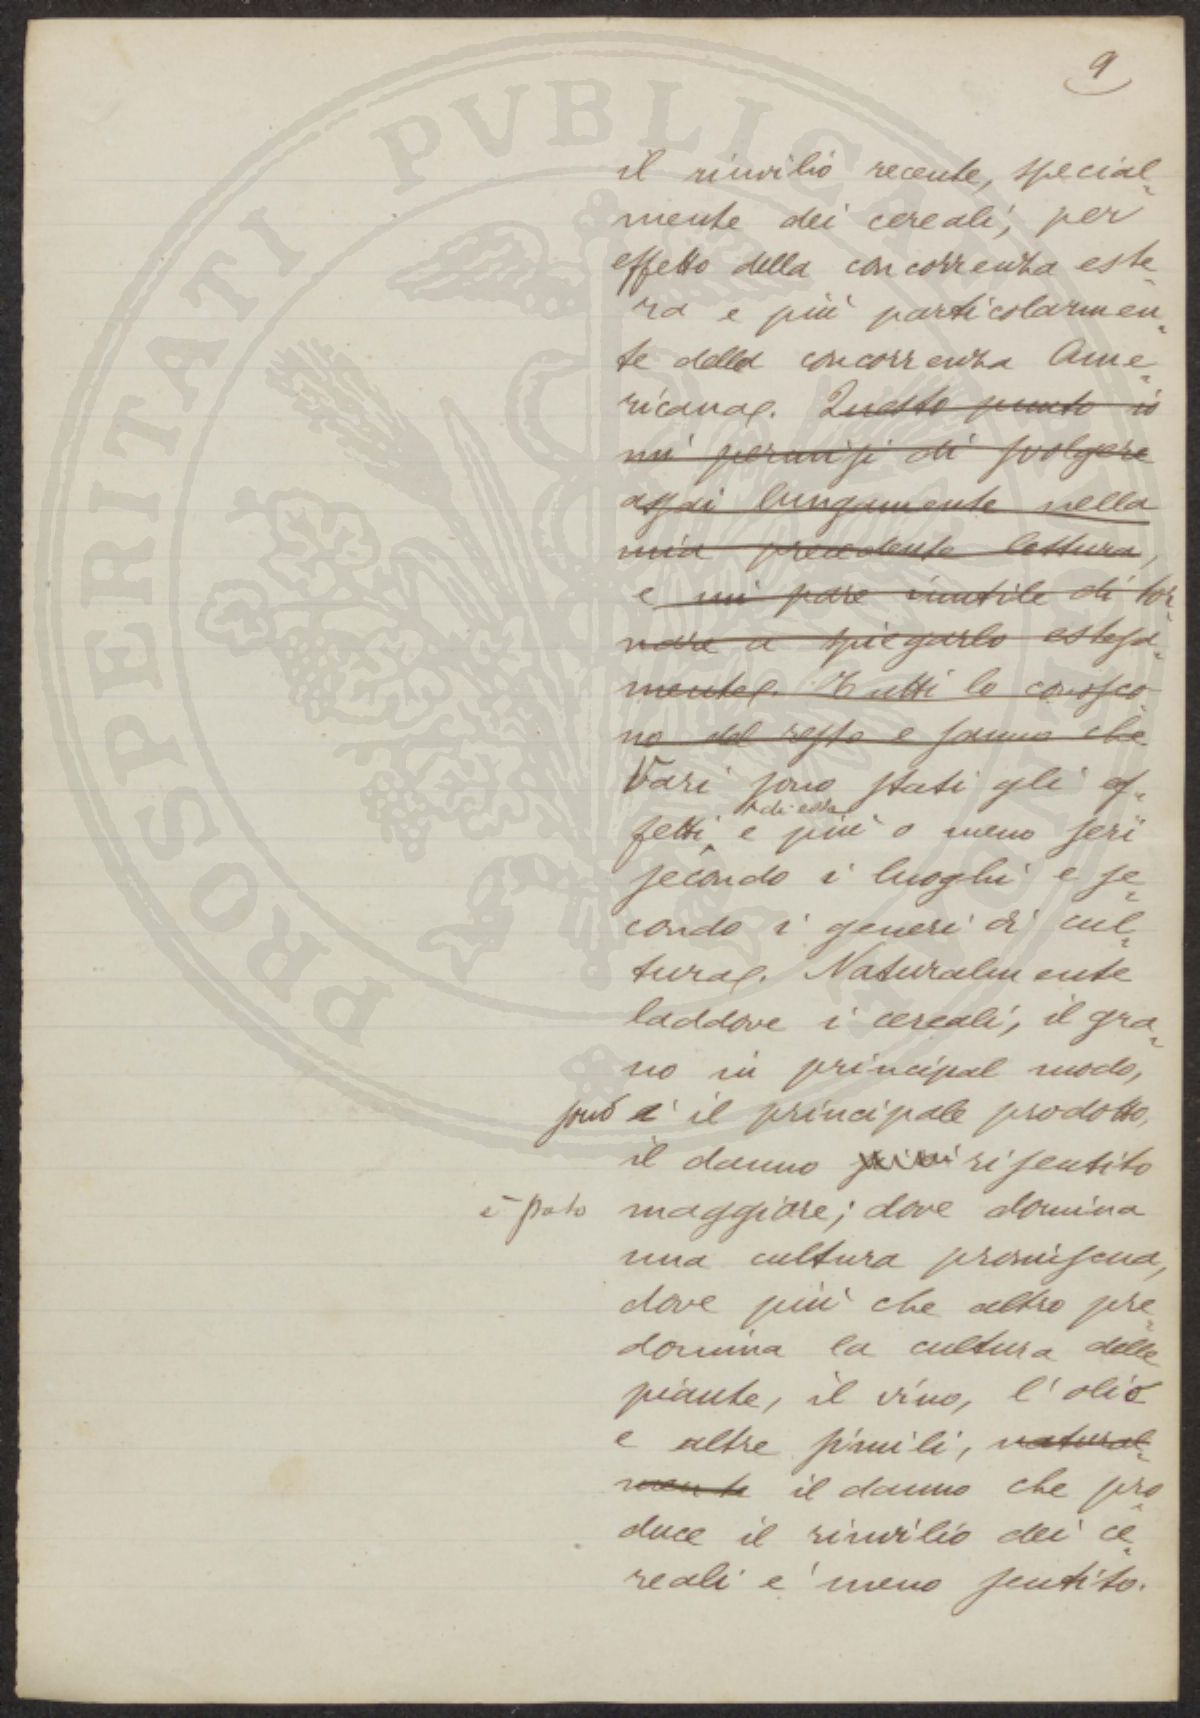 9
il rinvilio recente, special-
mente dei cereali, per
effetto della concorrenza este-
ra e più particolarmen-
te della concorrenza Ame-
ricana. Questo punto io
mi permisi di svolgere
assai lungamente nella
mia precedente lettura,
e mi pare inutile di tor-
nare a spiegarlo estesa-
mente. Tutti lo conosco-
no del resto e sanno che
Vari sono stati gli ef-
di essa
fetti e più o meno serî
secondo i luoghi e se-
condo i generi di cul-
tura. Naturalmente
laddove i cereali, il gra-
no in principal modo,
sono è il principale prodotto,
il danno risentito
è stato maggiore; dove domina
una cultura promiscua,
dove più che altro pre-
domina la cultura delle
piante, il vino, l'olio
e altre simili, natural-
mente il danno che pro-
duce il rinvilio dei ce-
reali è meno sentito.
PROSPERITATI PVBLICAE